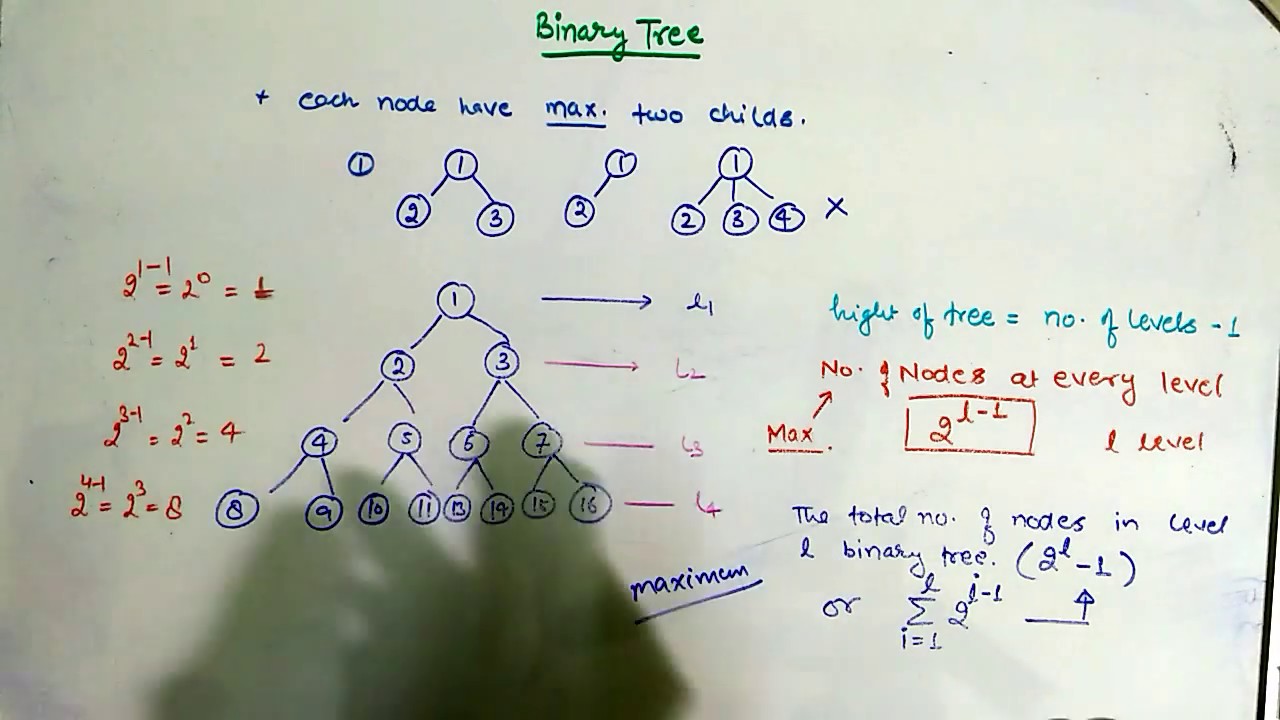 Binary Tree
+ each node have max. two childs.
1 1 1 1
2 3 2 2 3 4 ×
2^{1-1} = 2^0 = 1
1 → l1
hight of tree = no. of levels - 1
2^{2-1} = 2^1 = 2
2 3 → L2
No. of Nodes at every level
Max. 2^{l-1} l level
2^{3-1} = 2^2 = 4
4 5 6 7 — L3
2^{4-1} = 2^3 = 8
8 9 10 11 13 14 15 16 — L4
The total no. of nodes in level
l binary tree. (2^l - 1)
maximum
or \sum_{i=1}^{l} 2^{i-1} ↑